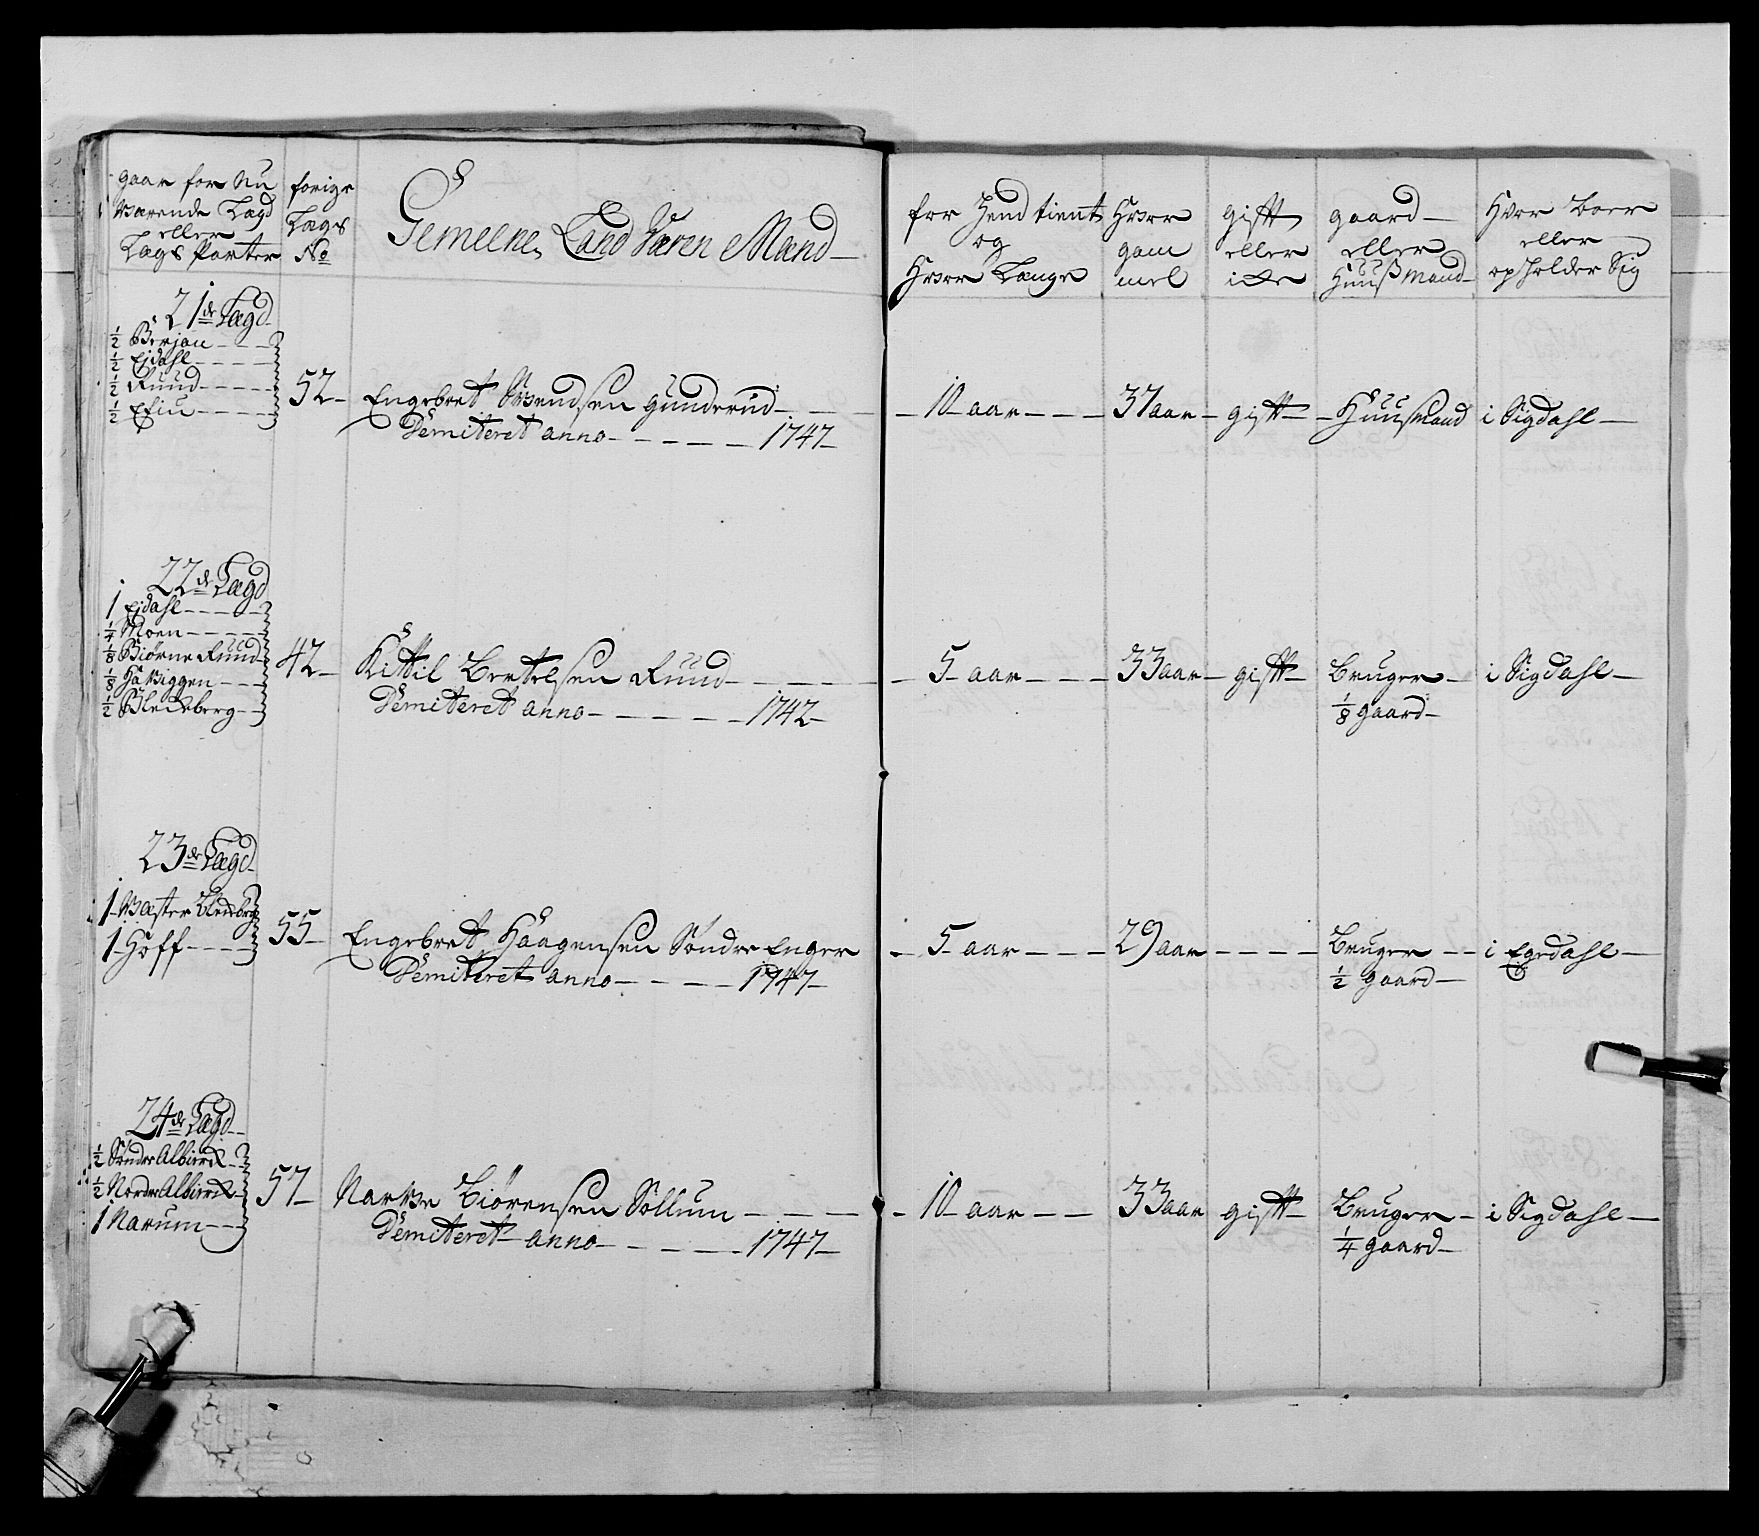 gaar for Nu
værende Lægd
eller
Lægs Parter
forige
Lægs
No
Gemeene Land Væren Mand
for hend tient
og
Hvor Længe
Hvor
gam
mel
gift
eller
icke
gaard
eller
Huußmand
Hvor boer
eller
opholder Sig
21de Lægd
1/2 Berjan
1/2 Ejdahl
1/2 Ruud
1/2
52 Engebret Svendsen Gunderud
Demiteret anno 1747
10 aar 37 aar gift Huusmand i Sigdahl
22de Lægd
1 Ejdahl
1/4 Moen
1/8 Biørne Ruud
1/8 Haviggen
1/2 Bleckeberg
42 Kittil Bertelsen Ruud
Demiteret anno 1742
5 aar 33 aar gift Bruger
1/8 gaard
i Sigdahl
23de Lægd
1 Væster Blegeberg
1 Hoff
55 Engebret Haagensen Søndre Enger
Demiteret anno 1747
5 aar 29 aar Bruger
1/2 gaard
i Egedahl
24de Lægd
1/2 Søndre Albierck
1/2 Nordre Albierck
1 Narum
57 Narve Biørensen Sollum
Demiteret anno 1747
10 aar 33 aar gift Bruger
1/4 gaard
i Sigdahl